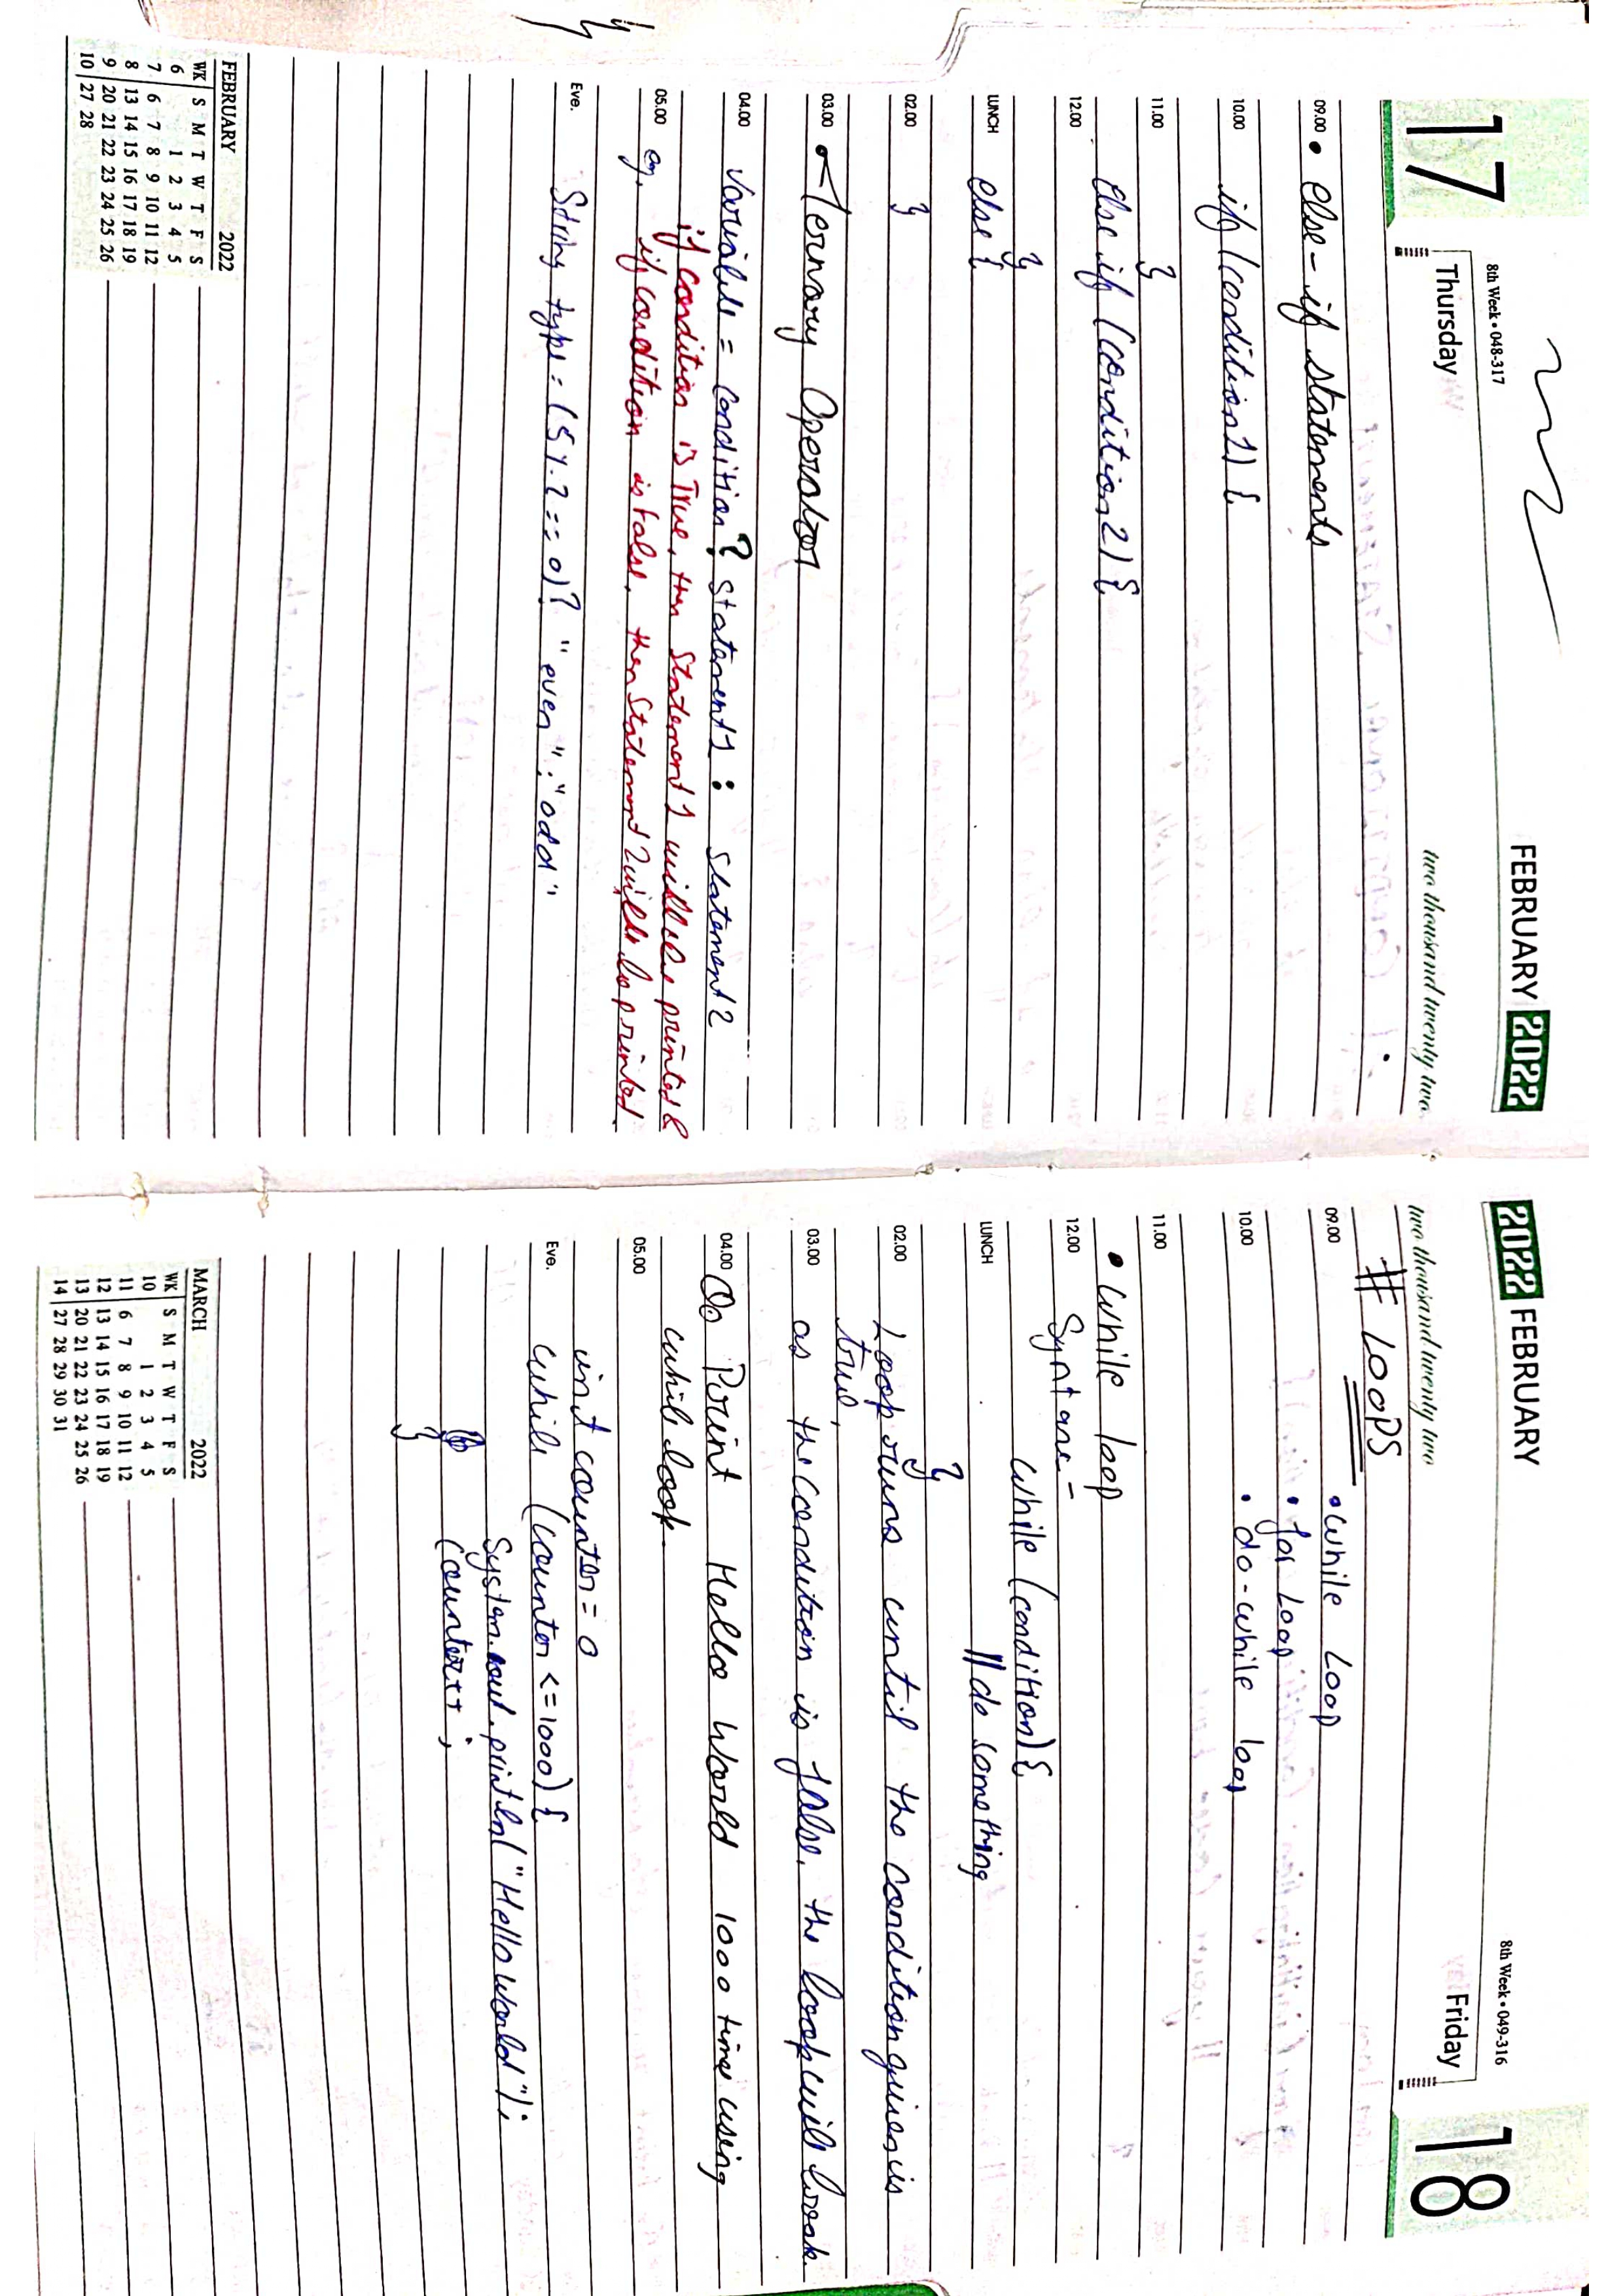 17
8th Week • 048-317
FEBRUARY 2022
Thursday
two thousand twenty two
09.00 • else-if statements
10.00 if (condition1) {
11.00 }
else if (condition2) {
12.00
}
LUNCH else {
02.00 }
03.00 • Ternary Operator
04.00 Variable = condition ? statement1 : statement2
if condition is True, then Statement 1 will be printed &
05.00 eg. if condition is False, then Statement 2 will be printed
Eve. String type = (5%2 == 0)? "even" : "odd"
FEBRUARY 2022
WK S M T W T F S
6 1 2 3 4 5
7 6 7 8 9 10 11 12
8 13 14 15 16 17 18 19
9 20 21 22 23 24 25 26
10 27 28
2022 FEBRUARY
8th Week • 049-316
18
Friday
two thousand twenty two
# LOOPS
09.00 • while Loop
• for Loop
10.00 • do-while loop
11.00
• while loop
12.00 Syntax -
while (condition) {
LUNCH // do something
}
02.00 Loop runs until the condition given is
true,
03.00 as the condition is false, the loop will break.
04.00 Q. Print Hello World 1000 times using
while loop.
05.00
int counter = 0
Eve. while (counter <= 1000) {
System.out.println("Hello World");
counter++;
}
MARCH 2022
WK S M T W T F S
10 1 2 3 4 5
11 6 7 8 9 10 11 12
12 13 14 15 16 17 18 19
13 20 21 22 23 24 25 26
14 27 28 29 30 31